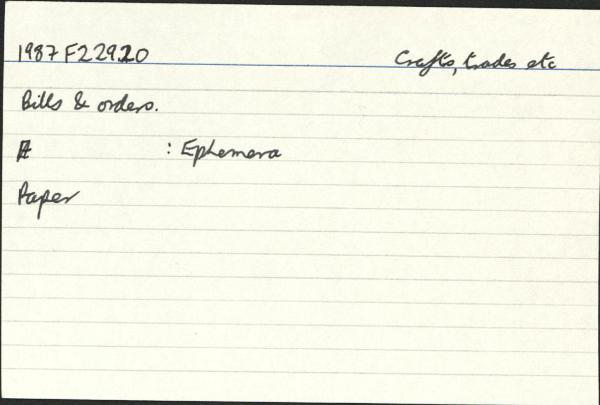 1987 F22920 Crafts, trades etc
Bills & orders.
: Ephemera
Paper